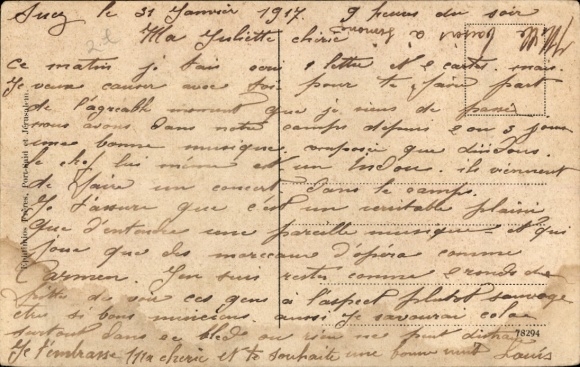 Suez le 31 Janvier 1917. 9 heures du soir
Ma Juliette chérie
ce matin je t'ais écri 1 lettre et 2 cartes. mais
Je veux causer avec toi pour te faire part
de l'agreable moment que je viens de passé
nous avons dans notre camps depuis 2 ou 3 jours
une bonne musique composée que d'indous.
le chef lui même est un Indou. ils viennent
de faire un concert dans le camp.
Je t'assure que c'est un veritable plaisir
que d'entendre une pareille musique et qui
joue que des morceaux d'opéra comme
Carmen. J'en suis resté comme 2 ronds de
de voir ces gens à l'aspect plutot sauvage
etre si bons musiciens. aussi Je savourai cela
surtout dans ce bled ou rien ne peut
Je t'embrasse Ma cherie et te souhaite une bonne nuit Louis
Port-Saïd et Jérusalem.
78294